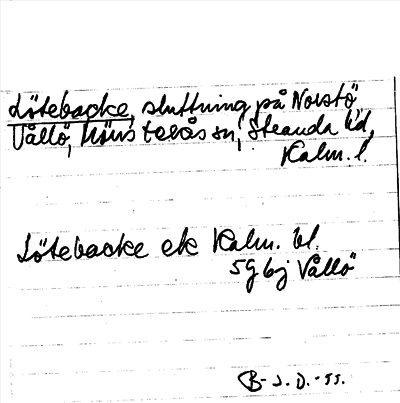 Lötebacke, sluttning på Norstö
Vållö, Mönsterås sn, Stranda hd,
Kalm. l.
Lötebacke ek Kalm. bl.
5g bj Vållö
J. D. -55.